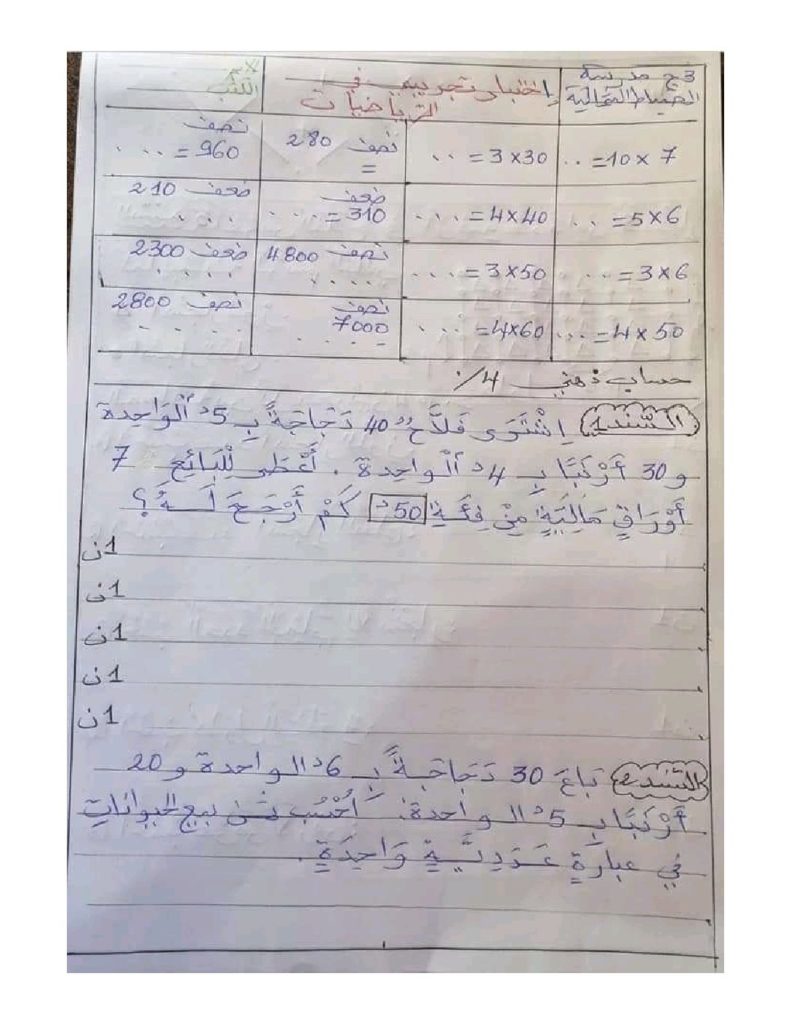 3ج مدرسة
الضباط الشمالية
إختبار تجريبي في
الرياضيات
7 × 10 = ..
3×30 = ..
نصف 280
=
نصف
960 = ...
6 × 5 = ..
4×40 = ...
ضعف
310 = ...
ضعف 210
...
6 × 3 = ..
3×50 = ...
نصف 4800
....
ضعف 2300
....
50 × 4 = ...
4×60 = ...
نصف
7000
....
نصف 2800
....
حساب ذهني 4/.
السّند1 اِشْتَرَى فَلاَّحٌ 40 دَجَاجَةً بِـ 5د اَلْوَاحِدة
و 30 أَرْنَبًا بِـ 4د اَلْواحِدة . أَعْطَى لِلْبَائِعِ 7
أَوْرَاقٍ مَالِيَةٍ مِنْ فِئَةِ 50د كَمْ أَرْجَعَ لَـهُ؟
1ن
1ن
1ن
1ن
1ن
السّند2 بَاعَ 30 دَجَاجَةً بِـ 6د الواحدة و 20
أَرْنَبًا بِـ 5د الواحدة. اُحْسُب ثمن بيع الحيوانات
في عبارةٍ عَدَدِيَّةٍ وَاحِدَةٍ .